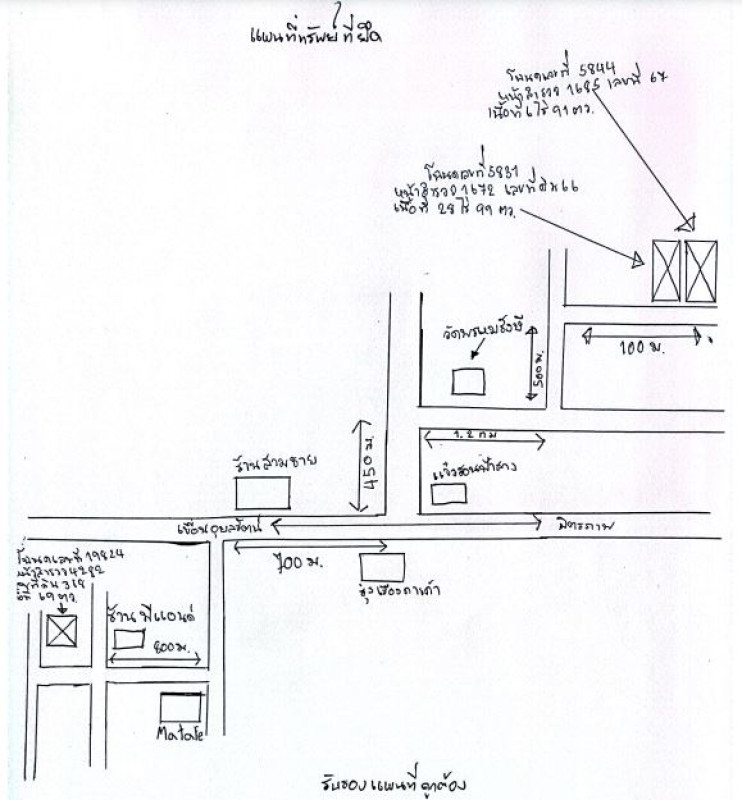 แผนที่ทรัพย์ที่ยึด
โฉนดเลขที่ 5844
หน้าสำรวจ 1685 เลขที่ 67
เนื้อที่ 6 ไร่ 91 ตว.
โฉนดเลขที่ 5831
หน้าสำรวจ 1672 เลขที่ดิน 66
เนื้อที่ 28 ไร่ 99 ตว.
วัดพรหมรังษี
500 ม.
100 ม.
1.2 กม
450 ม.
ร้านสามชาย
เขื่อนอุบลรัตน์
มิตรภาพ
700 ม.
โฉนดเลขที่ 19824
หน้าสำรวจ 4282
ที่ดิน 318
69 ตว.
ร้าน พีแอนด์
800 ม.
รุ่งเรืองคาเก้า
รับรองแผนที่ถูกต้อง